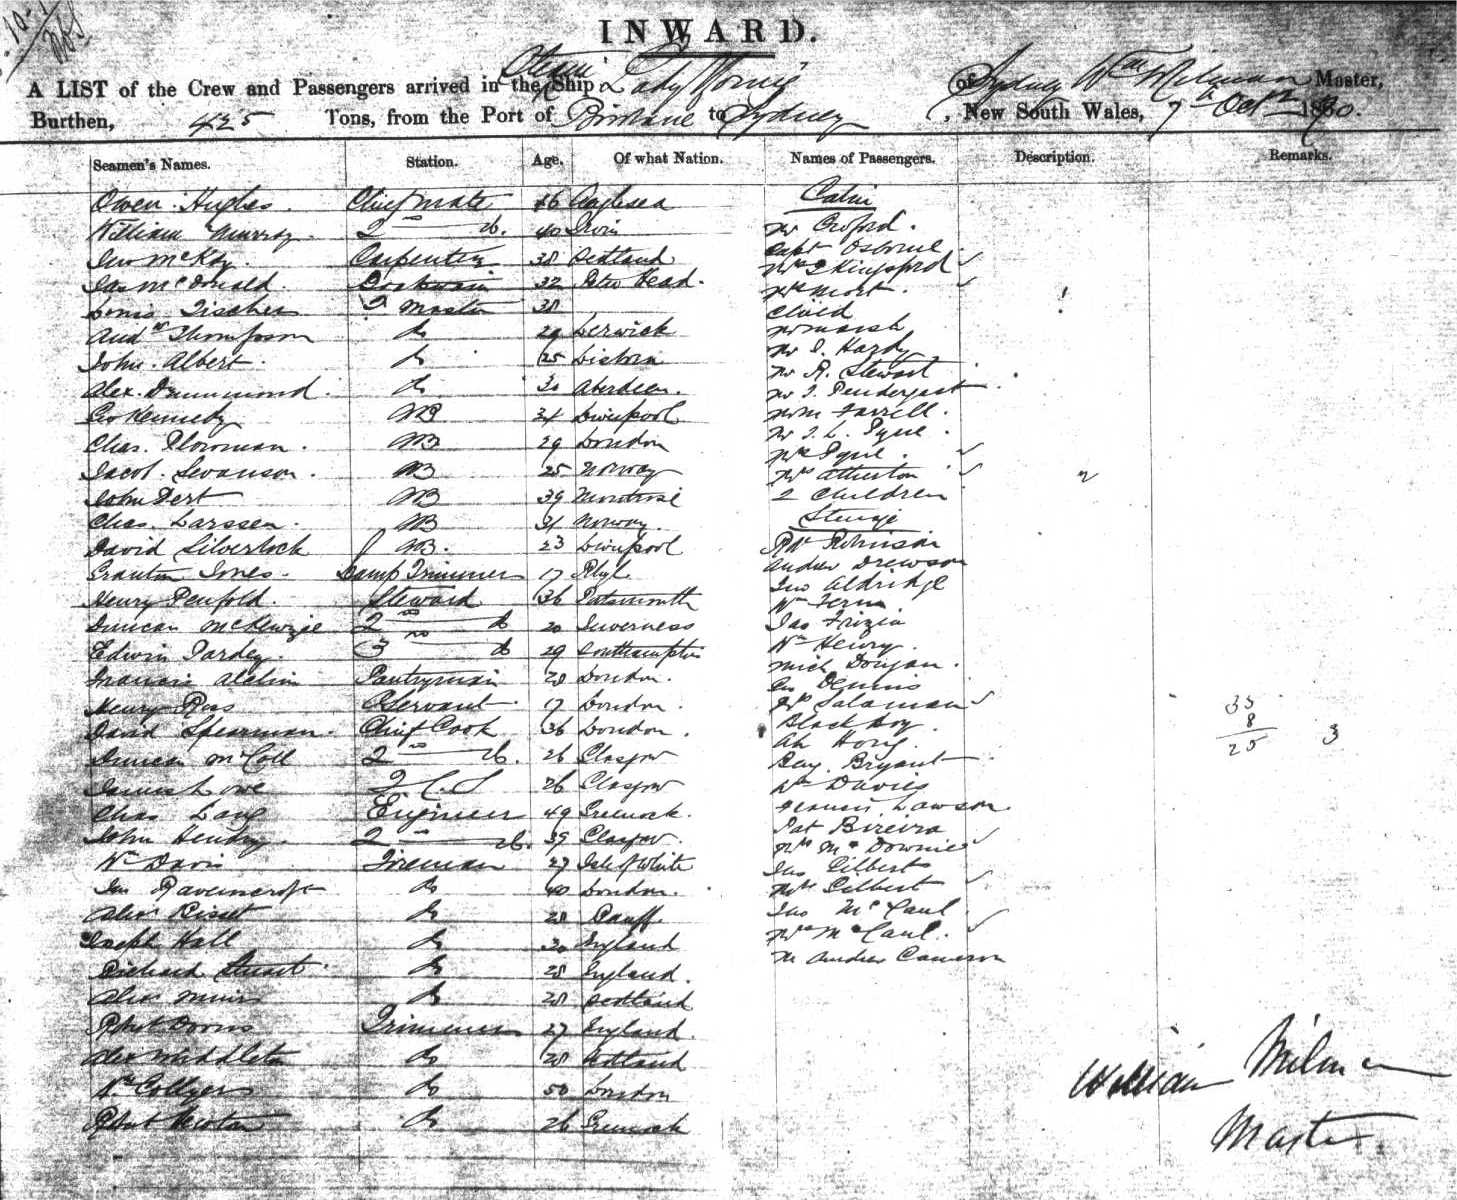 INWARD.
A LIST of the Crew and Passengers arrived in the Steam Ship Lady Young of Sydney Wm Milman Master,
Burthen, 425 Tons, from the Port of Brisbane to Sydney, New South Wales, 7th Oct 1880.
Seamen's Names. Station. Age. Of what Nation. Names of Passengers. Description. Remarks.
Owen Hughes. Chief Mate 46 Anglesea Cabin
William Murray 2nd do. 40 Mr
Jno McKay. Carpenter 38 Scotland Capt Osborne
Jas McDonald. 32 Peter Head. Mrs Kingsford
Louis Tischer Master 38 Mrs Mort.
Andw Thompson do 29 Lerwick Child
John Albert. do 25 Lisbon Mr Marsh
Alex. Drummond do. 30 Aberdeen. Mr Hardy
Geo Kennedy AB 34 Liverpool Mr R. Stewart
Chas. Plowman. AB 29 London Mr J. Pendergast
Jacob Swanson. AB 25 Norway Mr M Farrell.
John AB 39 Montrose Mr J. L. Pyne
Chas. Larssen. AB 31 Norway. Mrs Pyne.
David Silverlock AB. 23 Liverpool Mrs Atherton
Jones. Lamp Trimmer 17 Rhyl 2 Children
Henry Penfold. Steward 36 Portsmouth Steerage
Duncan McKenzie 2nd do 20 Inverness Robinson
Edwin Pardey. 3rd do 29 Southampton Andrew Drewson
Francis Pantryman 20 London. Jno Aldridge
Henry Ross Servant 17 London. Wm
David Spearman. Chief Cook 36 London. Jas
Duncan McColl 2nd do. 26 Glasgow Wm Henry.
James Lowe 26 Glasgow Mich Dougan.
Chas Lang Engineer 49 Greenock. Geo Dennis
John Hendry. 2nd do. 39 Glasgow. Salaman
Wm Davis Fireman 27 Isle of White Black boy.
Jno Ravenscroft do 40 London. Ah Hong.
Alex do 28 Banff. Bryant
Joseph Hall do 30 England Wm Davies
Richard Stuart do 28 England. Francis Lawson
Alex Muir do 28 Scotland Pat
Robt Trimmer 27 England. Mrs McDownie
Alex Middleton do 28 Scotland Jas Gilbert
Wm Collyer do 50 London Mrs Gilbert
Robt Newton do 26 Greenock Jas McCaul
Mrs McCaul.
Mr Andrew Cameron
33
8
25 3
William Milman
Master.